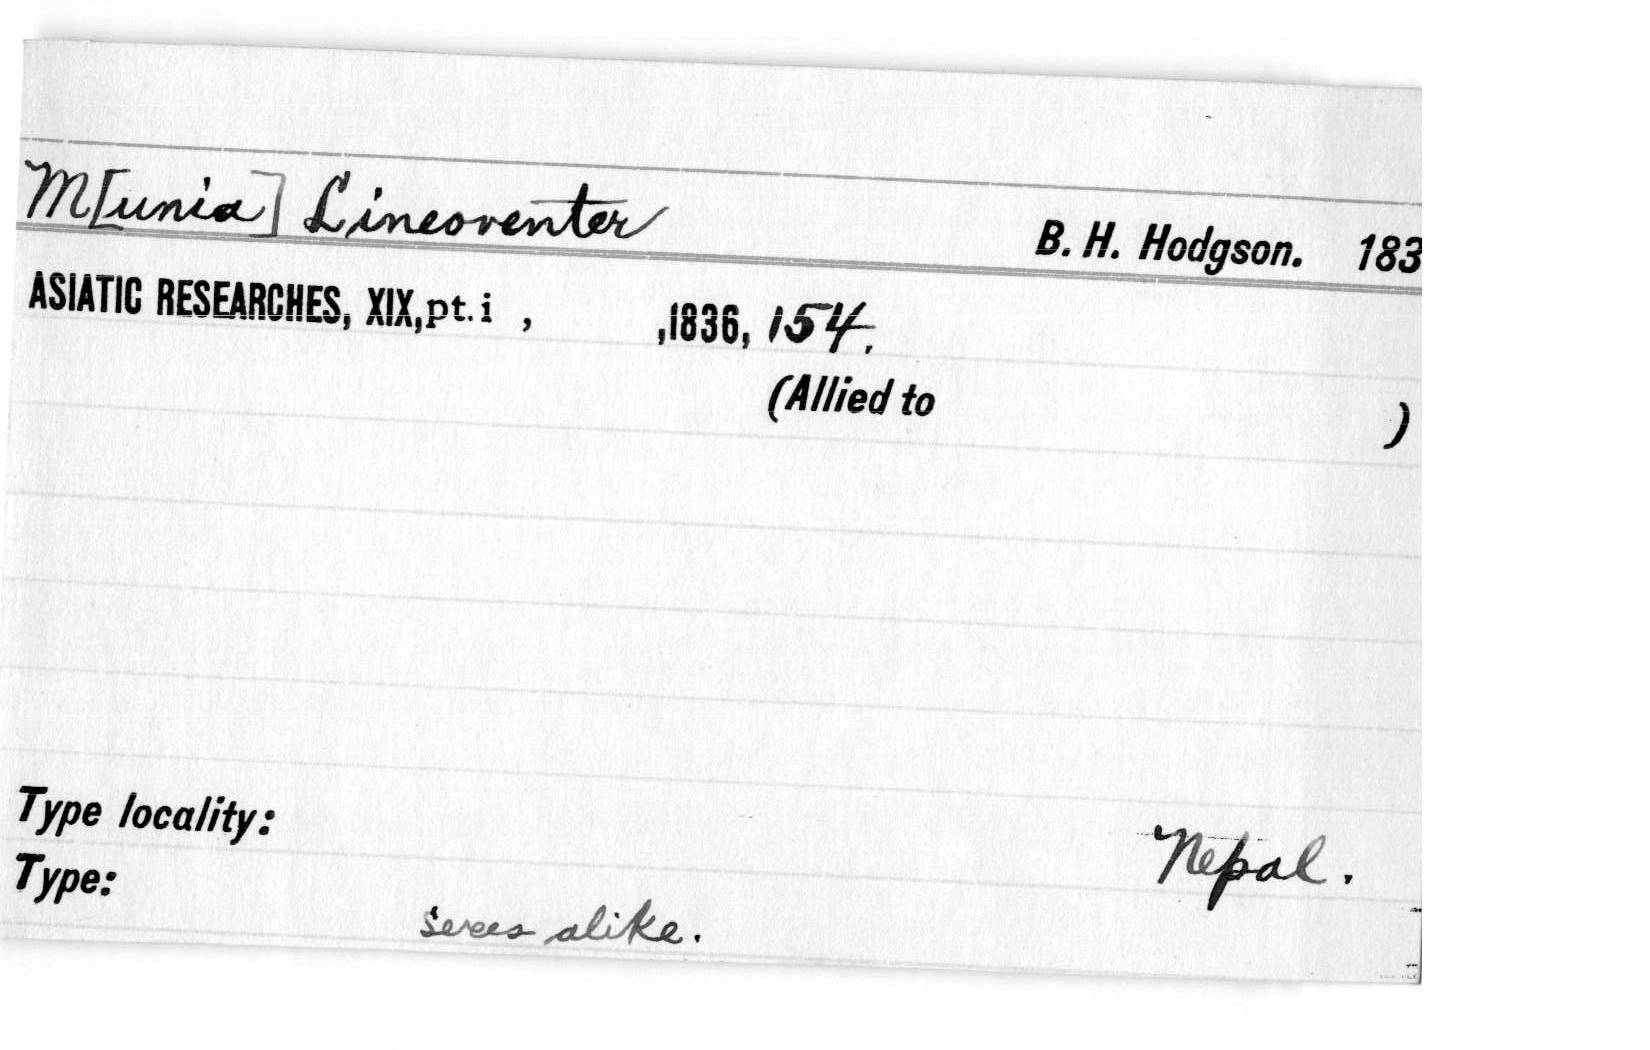 M[unia] Lineoventer
B. H. Hodgson. 183
ASIATIC RESEARCHES, XIX, pt. i , ,1836, 154.
(Allied to )
Type locality: Nepal.
Type:
Sexes alike.